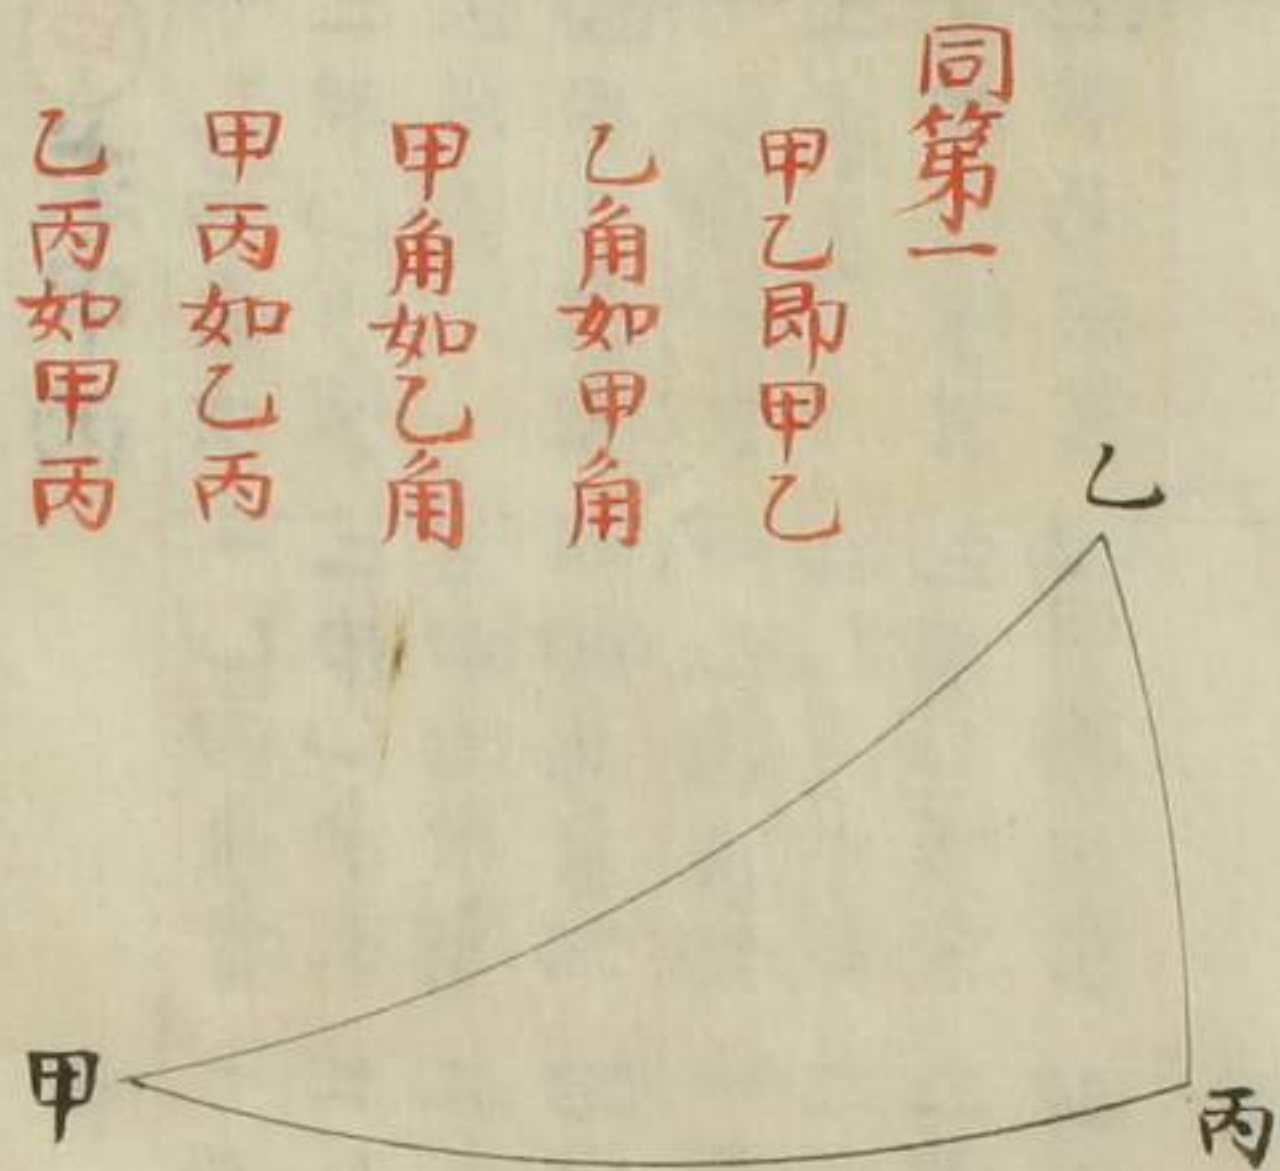 同第一
甲乙即甲乙
乙角如甲角
甲角如乙角
甲丙如乙丙
乙丙如甲丙
乙
甲
丙